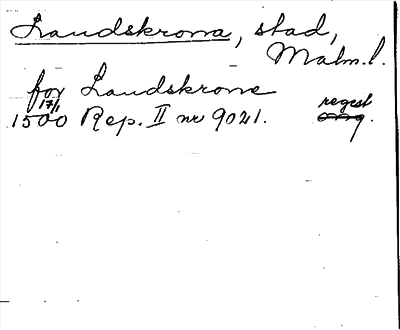 Landskrona, stad,
Malm.l.
for Landskrone
17/1
1500 Rep. II nr 9021. regest